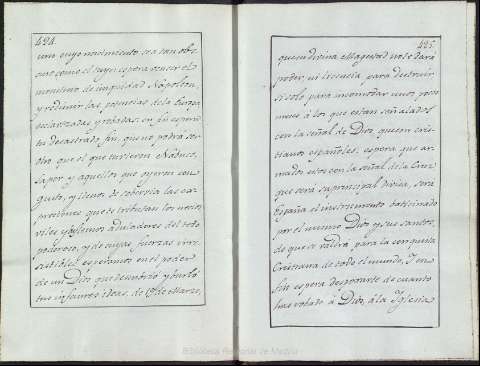 424.
una cuyo nacimiento sea tan obs
curo como el suyo espera vencer el
monstruo de iniquidad Napoleon,
y redimir las potencias de la Europa
esclavizadas y robadas: en fin espera
tu desastrado fin, que no podrá ser
otro que el que tuvieron Nabuco,
Sapor y aquellos que oyeron con
gusto, y llenos de sobervia las ex
presiones que te tributan los necios
viles y
poderoso, y de cuyas fuerzas irre
sistibles esperamos en el poder
de un Dios que desunirá y burla
tus infaustas ideas. de 19 de Marzo,
425.
quien divina Magestad no te dará
poder, ni licencia para destruir
si solo para incomodar unos pocos
meses á los que estan señalados
con la señal de Dios, quien cris
tianos españoles, espera que ar
mados estos con la señal de la Cruz
que será su principal divisa, será
España el instrumento
por el mismo Dios y sus santos,
de que se valdrá para la conquista
Cristiana de todo el mundo, Y en
fin espera despojarte de quanto
has robado á Dios, á la Iglesia
Biblioteca Regional de Madrid